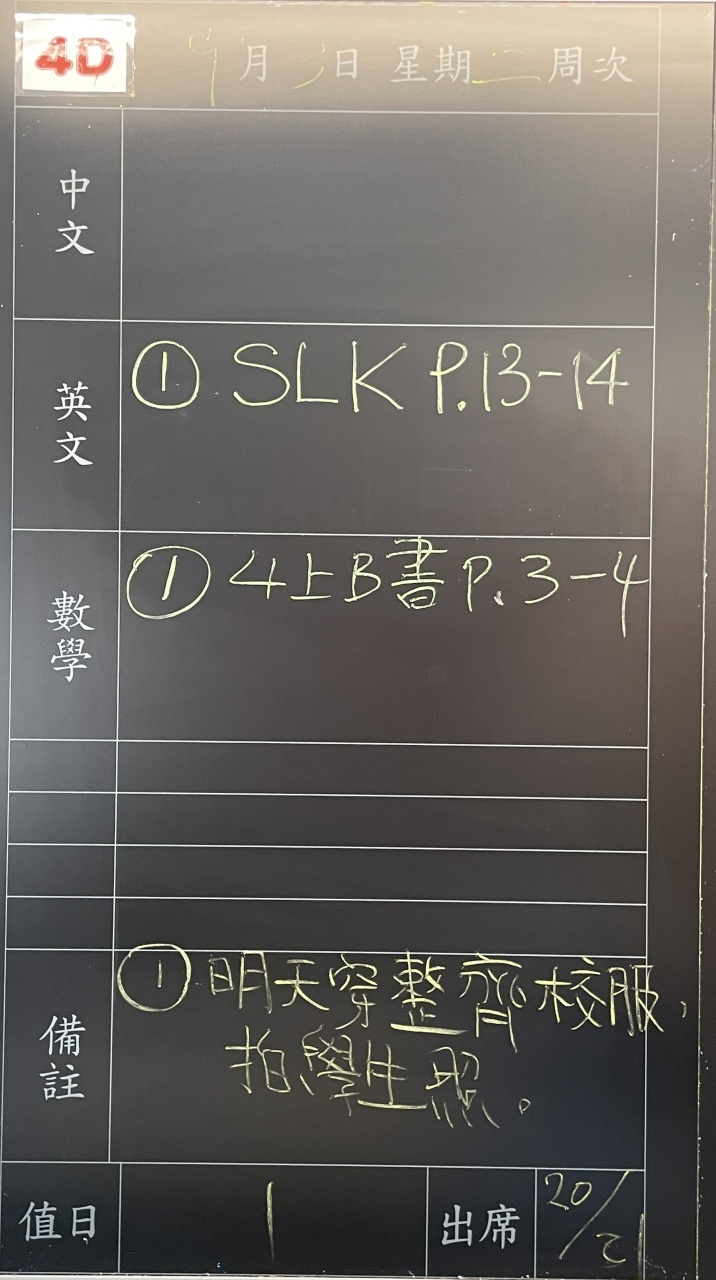 4D 9月3日 星期二 周次
中文
英文 ① SLK P.13-14
數學 ① 4上B書 P.3-4
備註 ① 明天穿整齊校服,
拍學生照。
值日 1 出席 20/21